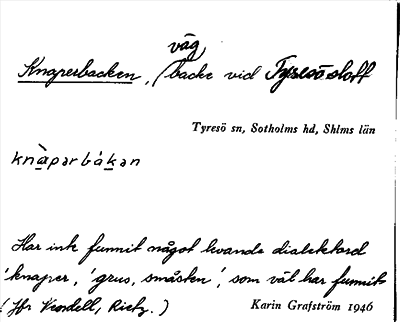 väg
Knaperbacken, /backe vid Tyresö slott
Tyresö sn, Sotholms hd, Shlms län
knàpərbákən
Har ink funnit något levande dialektord
'knaper, 'grus, småsten', som väl har funnits
(Jfr Vendell, Rietz.) Karin Grafström 1946